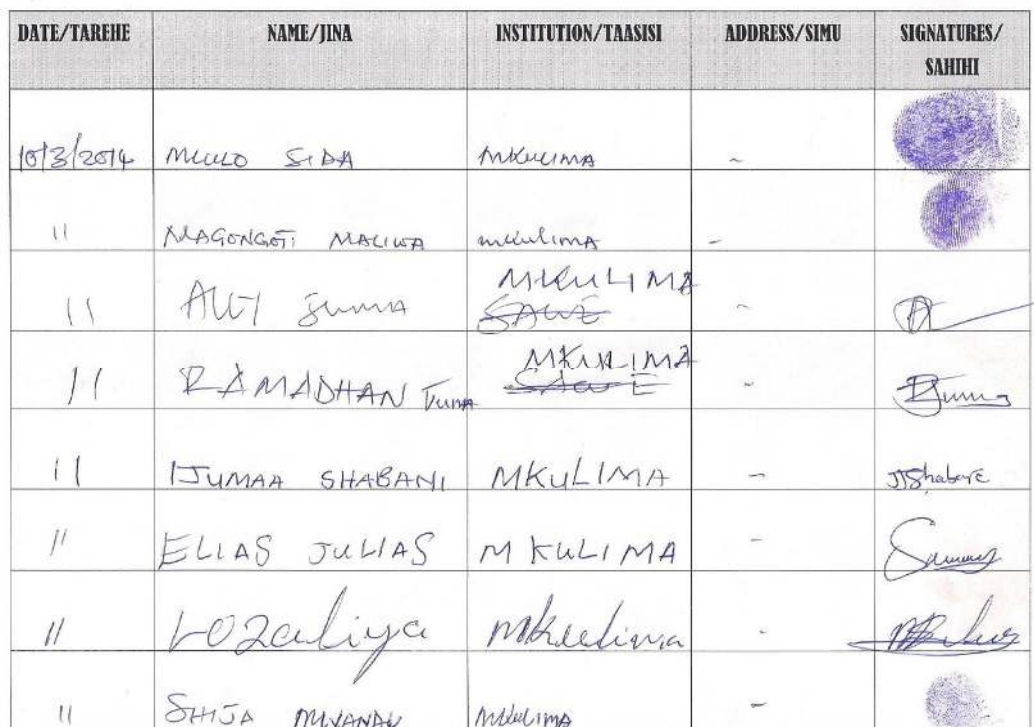 DATE/TAREHE NAME/JINA INSTITUTION/TAASISI ADDRESS/SIMU SIGNATURES/
SAHIHI
10/3/2014 MLULO SIDA MKULIMA ~
11 MAGONGOTI MALIWA mkulima -
MKULIMA
11 ALLY JUMA -
MKULIMA
11 RAMADHAN JUMA ~
11 IJUMAA SHABANI MKULIMA - JJShabani
11 ELIAS JULIAS MKULIMA -
11 LOZaliya Mkulima -
11 SHIJA MKULIMA -